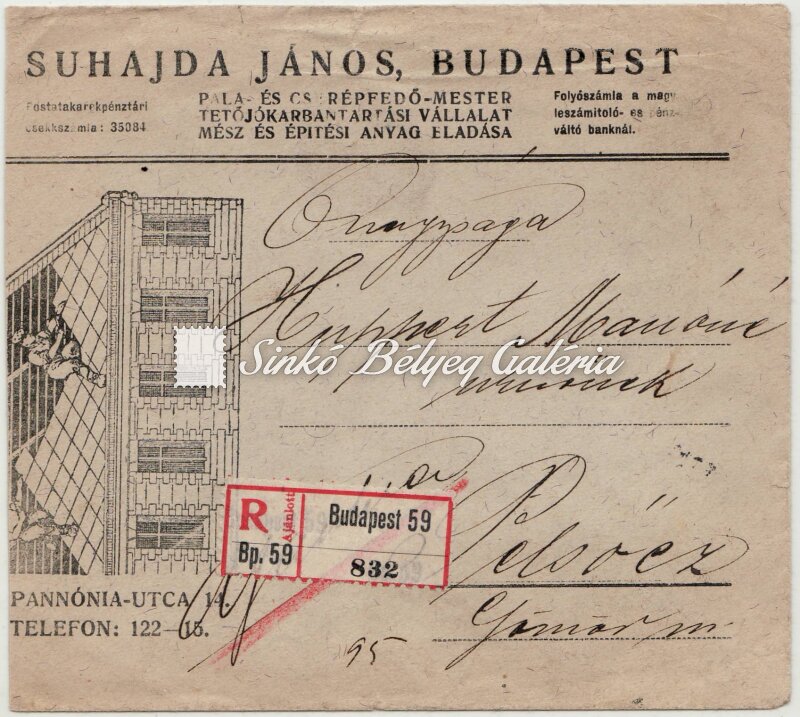 SUHAJDA JÁNOS, BUDAPEST
Postatakarékpénztári
csekkszámla: 35084
PALA- ÉS CSERÉPFEDŐ-MESTER
TETŐJÓKARBANTARTÁSI VÁLLALAT
MÉSZ ÉS ÉPITÉSI ANYAG ELADÁSA
Folyószámla a magy.
leszámitoló- es pénz-
váltó banknál.
Önagysága
Huppert Manóné
urnőnek
Sinkó Bélyeg Galéria
Pelsőcz
Gömör m.
R
Ajánlott
Bp. 59
Budapest 59
832
PANNÓNIA-UTCA 14.
TELEFON: 122—15.
95